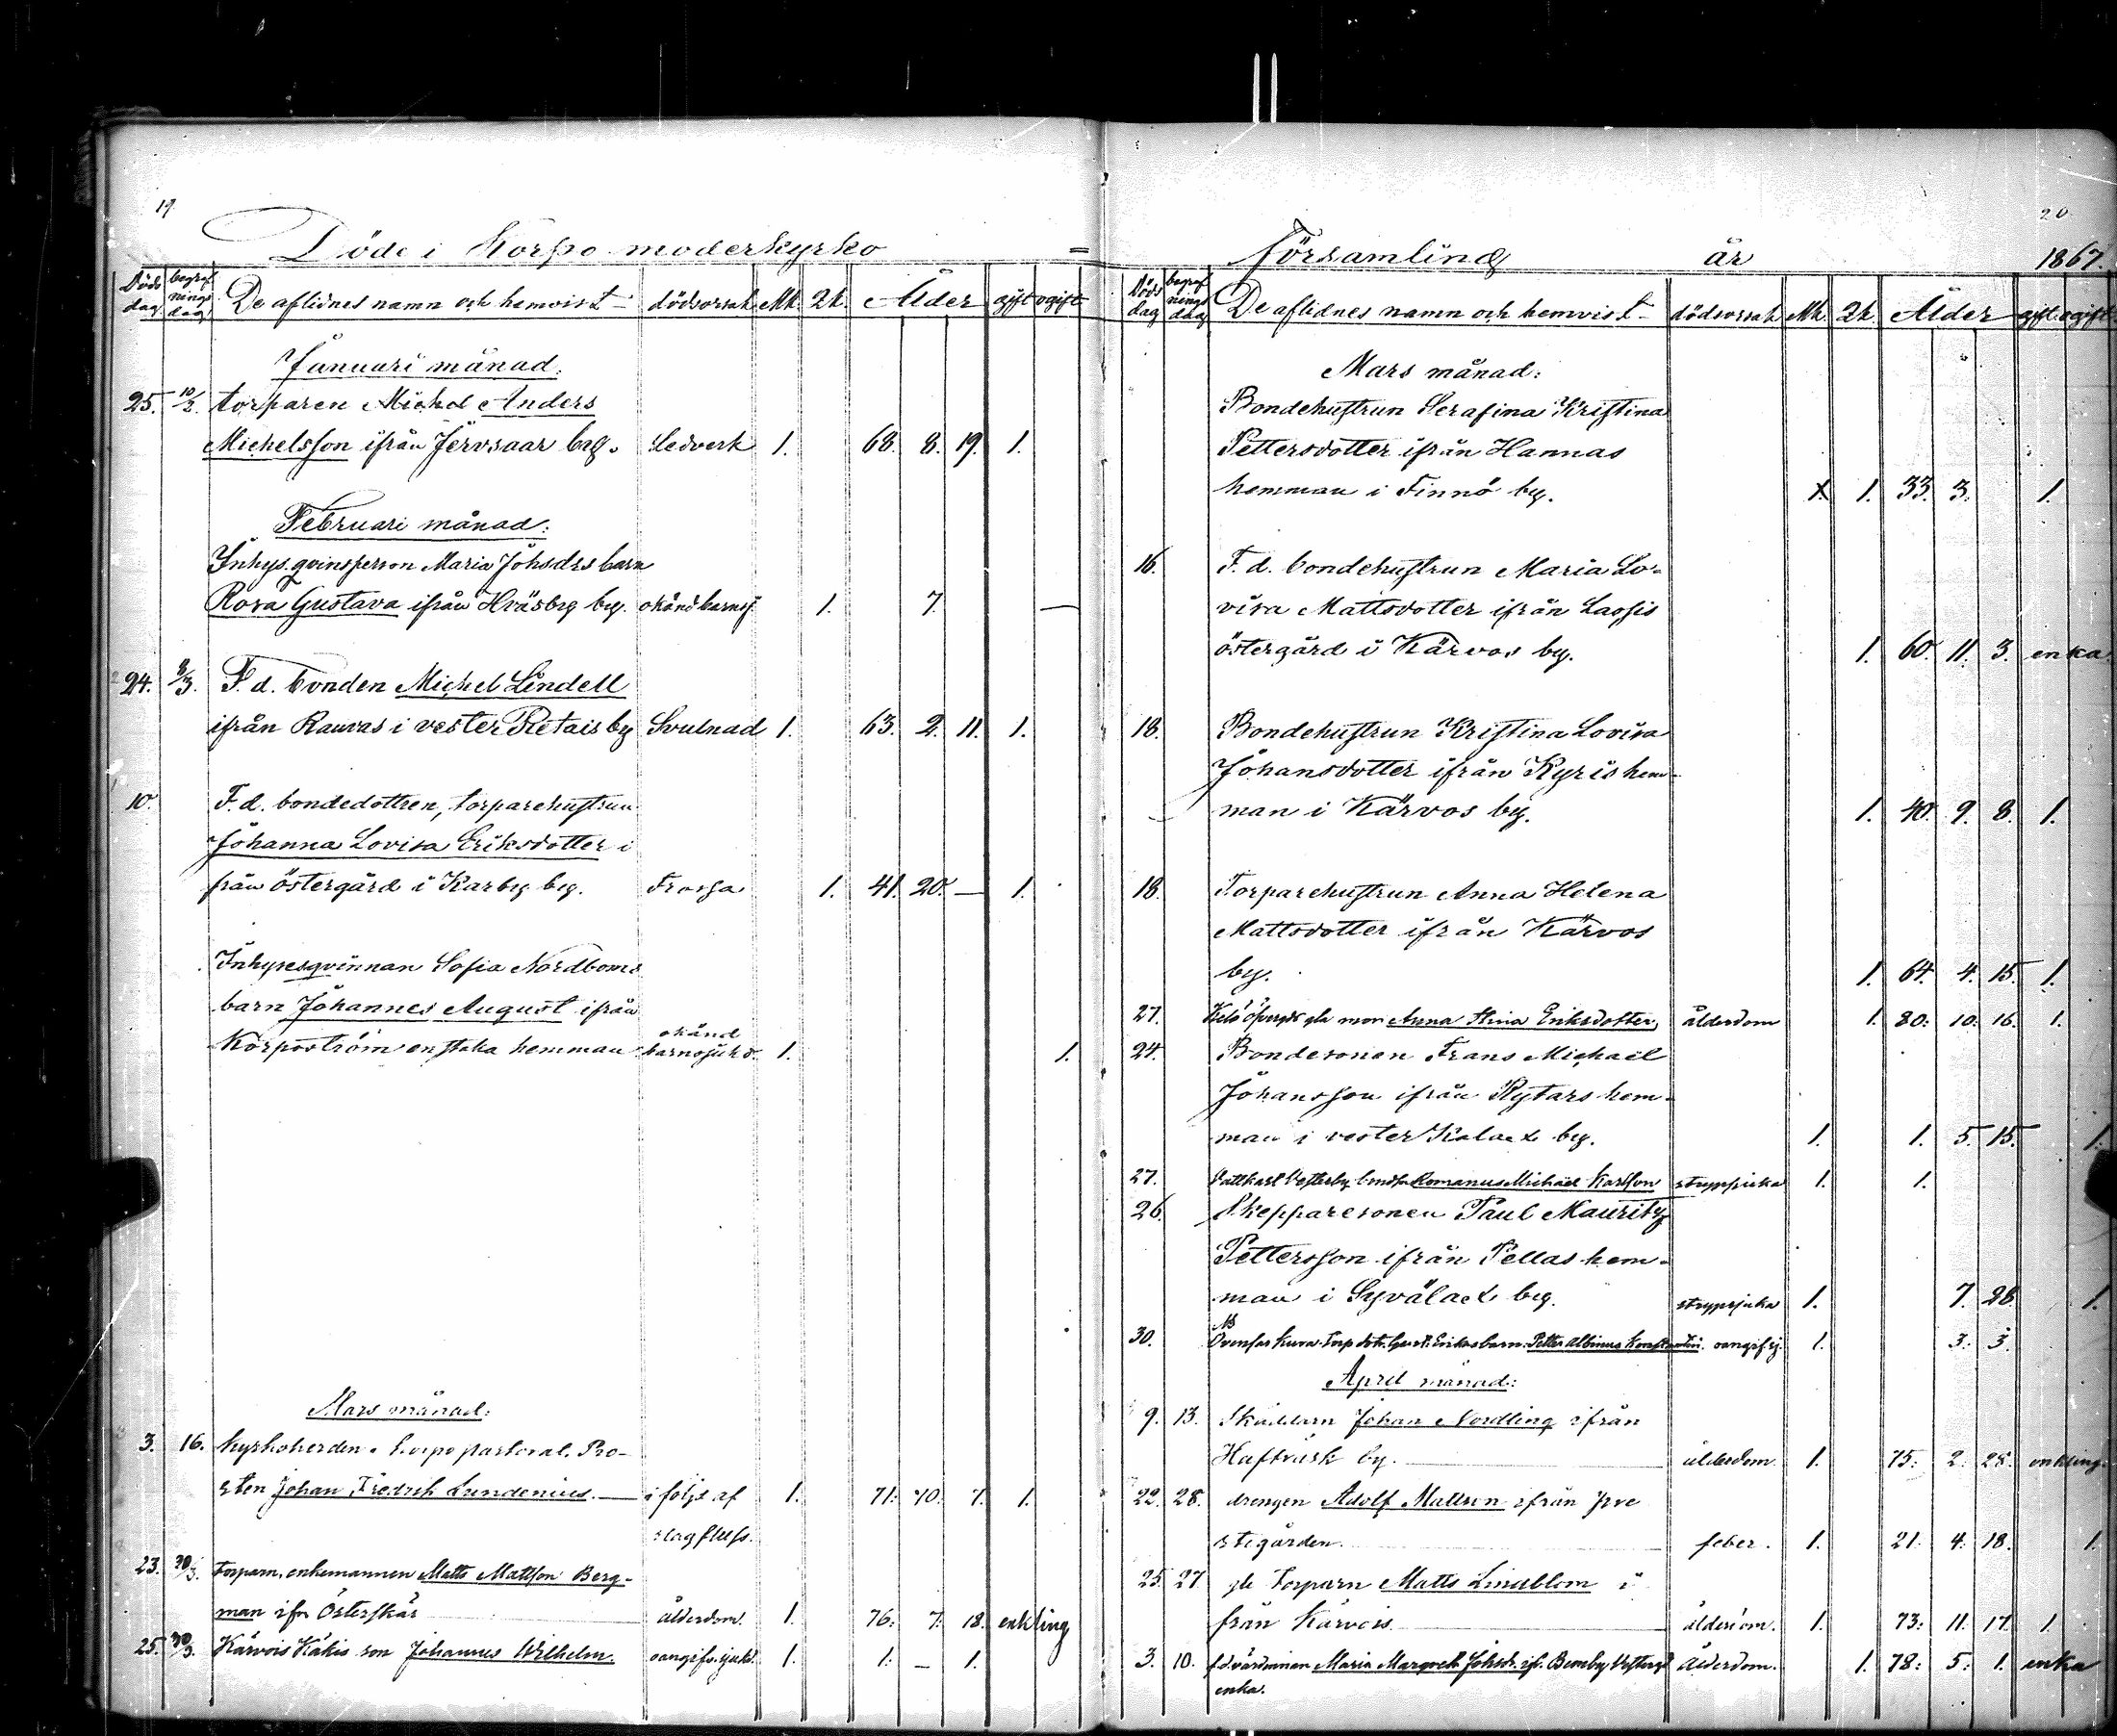 19.
Döde i Korpo moderkyrko =
Döds dag begrafnings dag De aflidnes namn och hemvist dödsorsak Mk. 2k. Ålder gift ogift
Januari månad.
25. 10/2. torparen Michel Anders
Michelsson ifrån Jervsaar by. Ledverk 1. 68. 8. 19. 1.
Februari månad.
Inhys. qvinsperson Maria Johsdrs barn
Rosa Gustava ifrån by. okänd barnsj. 1. 7. —
24. 8/3. F. d. bonden Michel Lindell
ifrån Rauvas i vester Retais by Svulnad 1. 63. 2. 11. 1.
10. F. d. bondedottren, torparehustrun
Johanna Lovisa Eriksdotter i
från östergård i Karby by. Frossa 1. 41. 20. — 1.
Inhysesqvinnan Sofia Nordboms
barn Johannes August ifrån
Korpoström enstaka hemman okänd barnsjukd. 1. 1.
Mars månad.
3. 16. Kyrkoherden i Korpo pastorat. Pro-
sten Johan Fredrik Lundenius. — i följd af 1. 71: 10. 7. 1.
slagfluss.
23. 30/3. torparn, enkemannen Matts Mattson Berg-
man ifrn Österskär ålderdom. 1. 76: 7: 18. enkling
25. 30/3. Kärvois Käkis son Johannes Wilhelm. oangifv. sjukd. 1. 1: — 1.
20
Församling år 1867.
Döds dag begrafnings dag De aflidnes namn och hemvist dödsorsak Mk. 2k. Ålder gift ogift
Mars månad:
Bondehustrun Serafina Kristina
Pettersdotter ifrån Hannas
hemman i Finnö by. 1. 33. 3. 1.
16. F. d. bondehustrun Maria Lo-
visa Mattsdotter ifrån Lassis
östergård i Kärvos by. 1. 60. 11. 3. enka.
18. Bondehustrun Kristina Lovisa
Johansdotter ifrån Kyris hem-
man i Kärvos by. 1. 40. 9. 8. 1.
18. Torparehustrun Anna Helena
Mattsdotter ifrån Kärvos
by. 1. 64. 4. 15. 1.
27. gla mor Anna Stina Eriksdotter, ålderdom 1. 80: 10: 16. 1.
24. Bondesonen Frans Michael
Johansson ifrån Rytars hem-
man i vester Kalax by. 1. 1. 5. 15. 1.
27. Vattkast Vesterby Romanus Michael Karlsson strypsjuka 1. 1.
26. Skepparesonen Paul Mauritz
Pettersson ifrån Pellas hem-
man i Syvälax by. strypsjuka 1. 7. 28. 1.
30. Kuva Torp barn: Petter Albinus Konstantin. oangif. sj. 1. 3: 3.
April månad:
9. 13. Skäddarn Johan Nordling ifrån
Haftrask by. ålderdom. 1. 75: 2: 28. enkling.
22. 28. drengen Adolf Mattson ifrån pre
stgården. feber. 1. 21: 4: 18. 1.
25. 27. gla Torparn Matts Lindblom i
från Kärvois ålderdom. 1. 73: 11: 17. 1.
3. 10. f. d. värdinnan Maria Margreth Johsdr. ifr. Ålderdom. 1. 78: 5: 1. enka
enka.